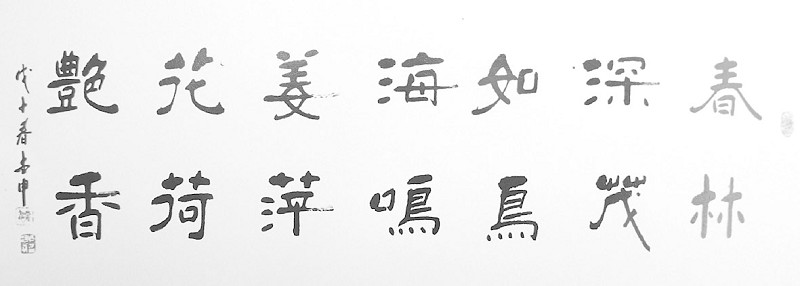 春深如海姜花艷
林茂鳥鳴萍荷香
戊子春